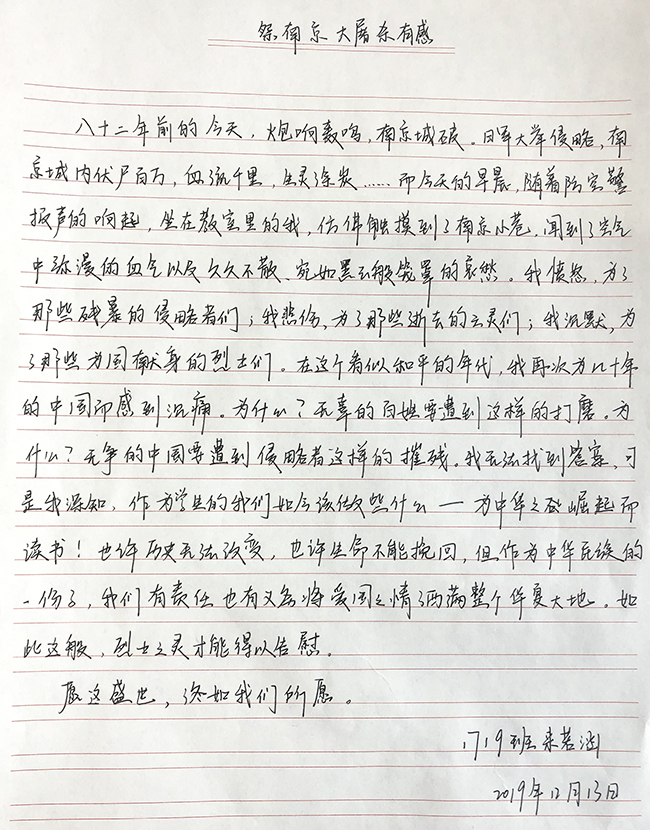 祭南京大屠杀有感
八十二年前的今天，炮响轰鸣，南京城破。日军大举侵略，南
京城内伏尸百万，血流千里，生灵涂炭……而今天的早晨，随着防空警
报声的响起，坐在教室里的我，仿佛触摸到了南京小巷，闻到了空气
中弥漫的血气以及久久不散、宛如黑云般笼罩的哀愁。我愤怒，为了
那些残暴的侵略者们；我悲伤，为了那些逝去的亡灵们；我沉默，为
了那些为国献身的烈士们。在这个看似和平的年代，我再次为八十年
的中国而感到沉痛。为什么？无辜的百姓要遭到这样的打磨。为
什么？无争的中国要遭到侵略者这样的摧残。我无法找到答案，可
是我深知，作为学生的我们如今该做些什么——为中华之崛起而
读书！也许历史无法改变，也许生命不能挽回，但作为中华民族的
一份子，我们有责任也有义务将爱国之情洒满整个华夏大地。如
此这般，烈士之灵才能得以告慰。
愿这盛世，终如我们所愿。
1719班 来若涵
2019年12月13日